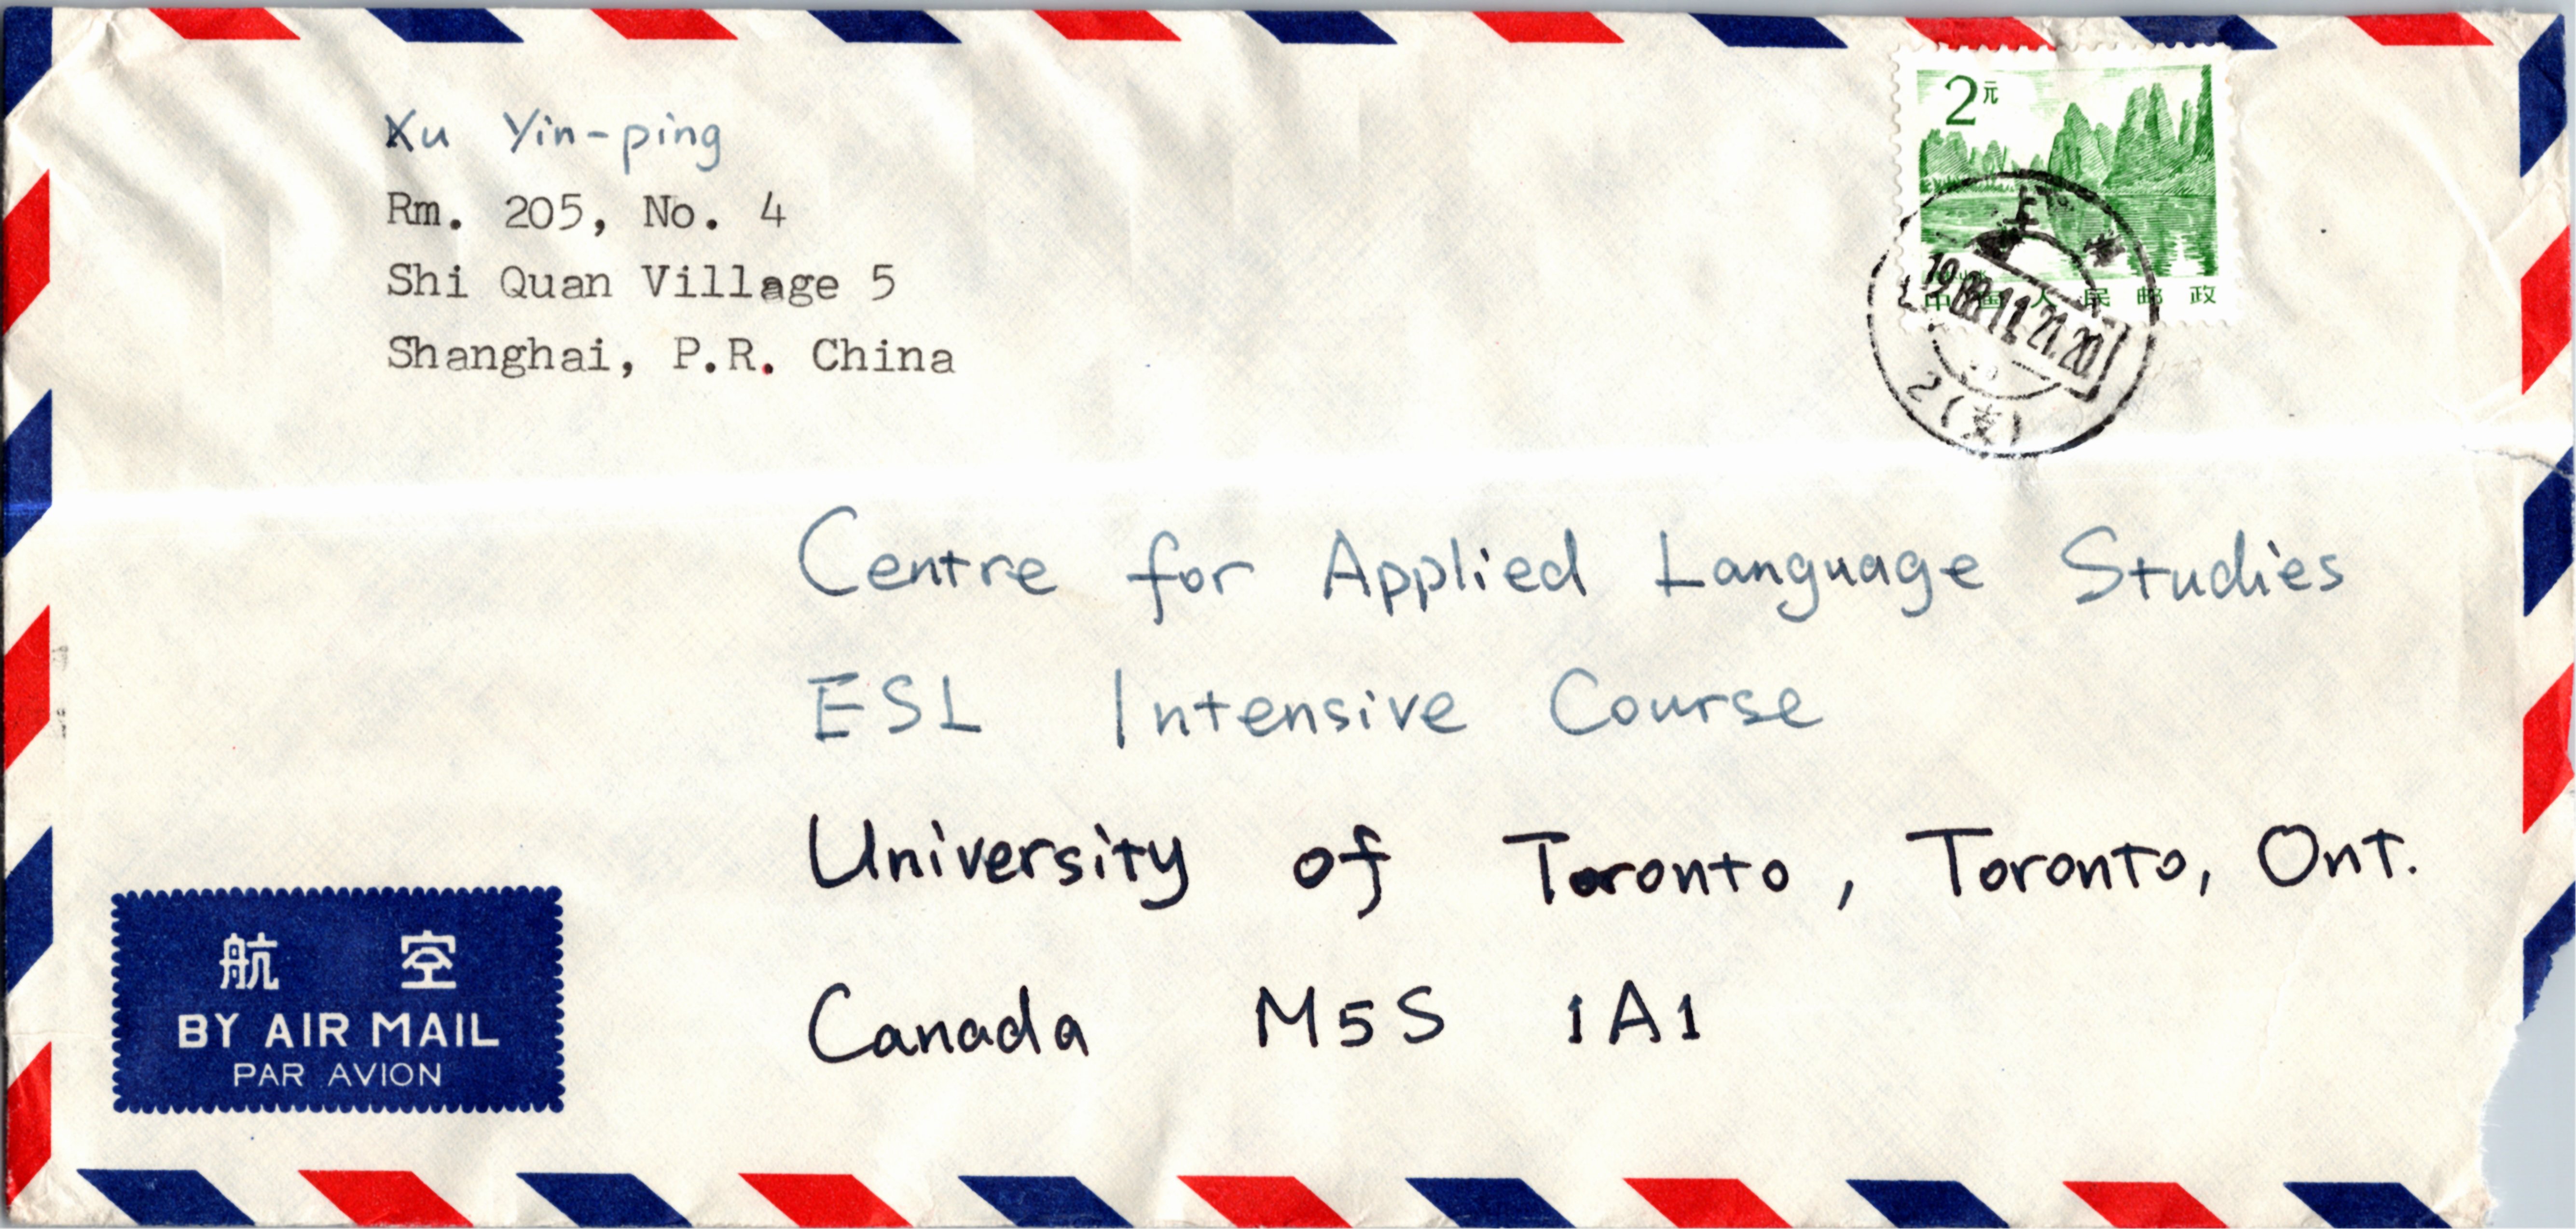 Xu Yin-ping
Rm. 205, No. 4
Shi Quan Village 5
Shanghai, P.R. China
2元
中国人民邮政
上海
1988.11.21.20
2(支)
Centre for Applied Language Studies
ESL Intensive Course
University of Toronto, Toronto, Ont.
Canada M5S 1A1
航空
BY AIR MAIL
PAR AVION